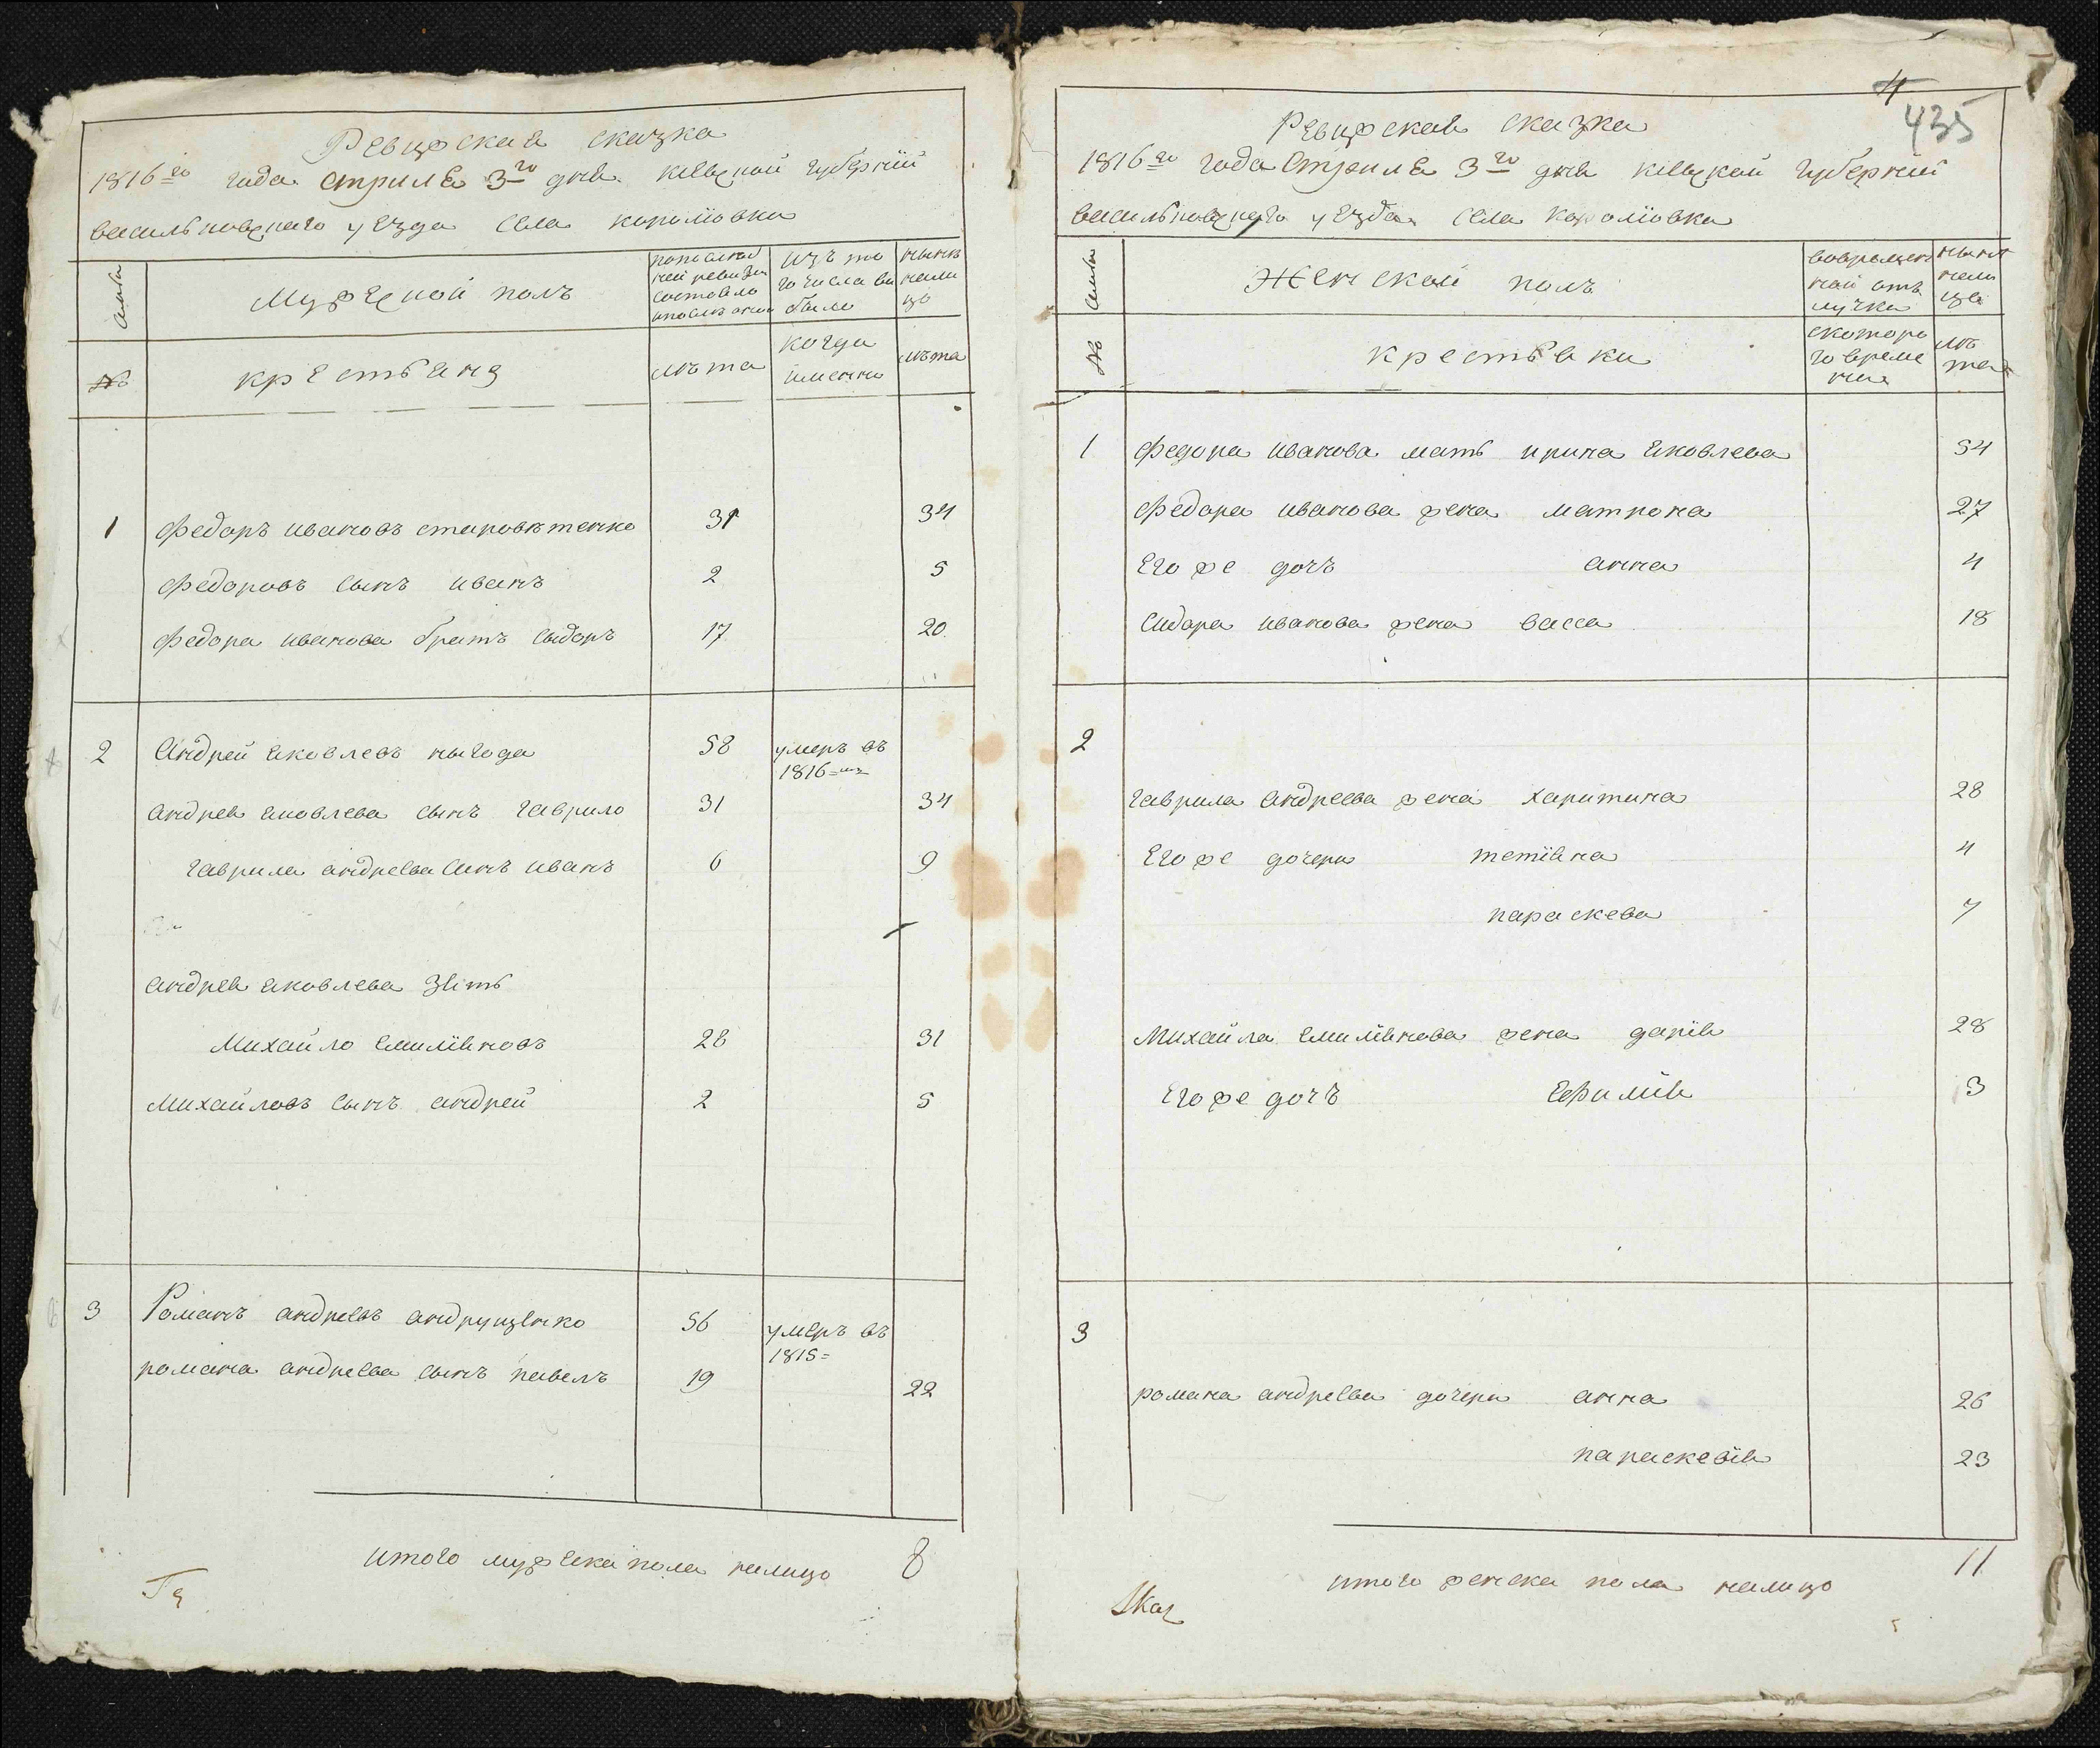 Ревижская сказка
1816го года априля 3го дня киевской губернии
васильковского уезда села королiовки
семьи
Мужеской полъ
попослед
ней ревизіи
состояло
и после оной
изъ то
го числа вы
было
нынѣ
нали
цо
№
крестьянѣ
лѣта
когда
именно
лѣта
1 Федоръ ивановъ старовѣтенко 31 34
Федоровъ сынъ иванъ 2 5
Федора иванова братъ сыдоръ 17 20
2 Андрей яковлевъ нагода 58 умеръ въ
1816=
андрея яковлева сынъ гаврило 31 34
гаврила андреева синъ иванъ 6 9
андрея яковлева зять
михайло емилiяновъ 28 31
михайловъ сынъ андрей 2 5
3 Романъ андреевъ андрущенко 56 умеръ въ
1815=
романа андреева сынъ павелъ 19 22
итого мужеска пола налицо 8
4
435
Ревижская сказка
1816го года априля 3го дня киевской губернии
васильковского уезда села королiовки
семьи
Женской полъ
вовремен
ной отъ
лучки
ныне
нали
цо
№
крестьянки
скоторо
го време
ни
лѣ
та
1 федора иванова мать ирина яковлева 54
федора иванова жена матрона 27
его же дочъ анна 4
сидора иванова жена васса 18
2
гаврила андреева жена харитина 28
его же дочери татiяна 4
параскева 7
михайла емилiянова жена дарiя 28
его же дочъ ефимiя 3
3
романа андреева дочери анна 26
параскевiя 23
итого женска пола налицо 11